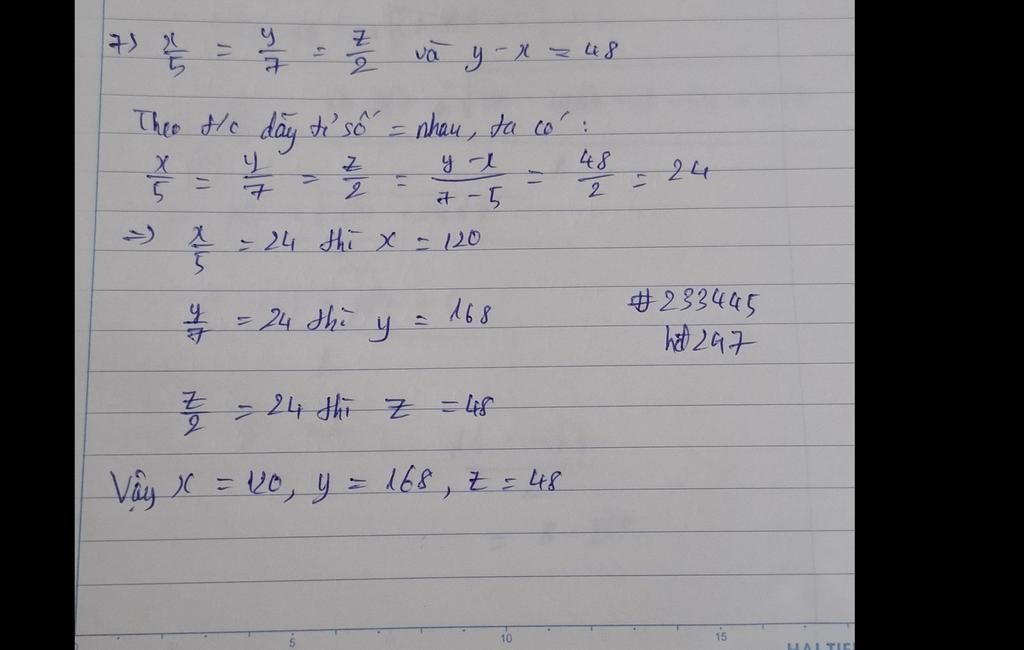 7) x/5 = y/7 = z/2 và y - x = 48
Theo t/c dãy tỉ số = nhau, ta có:
x/5 = y/7 = z/2 = (y - x)/(7 - 5) = 48/2 = 24
=> x/5 = 24 thì x = 120
y/7 = 24 thì y = 168
#233445
z/2 = 24 thì z = 48
Vậy x = 120, y = 168, z = 48
5 10 15